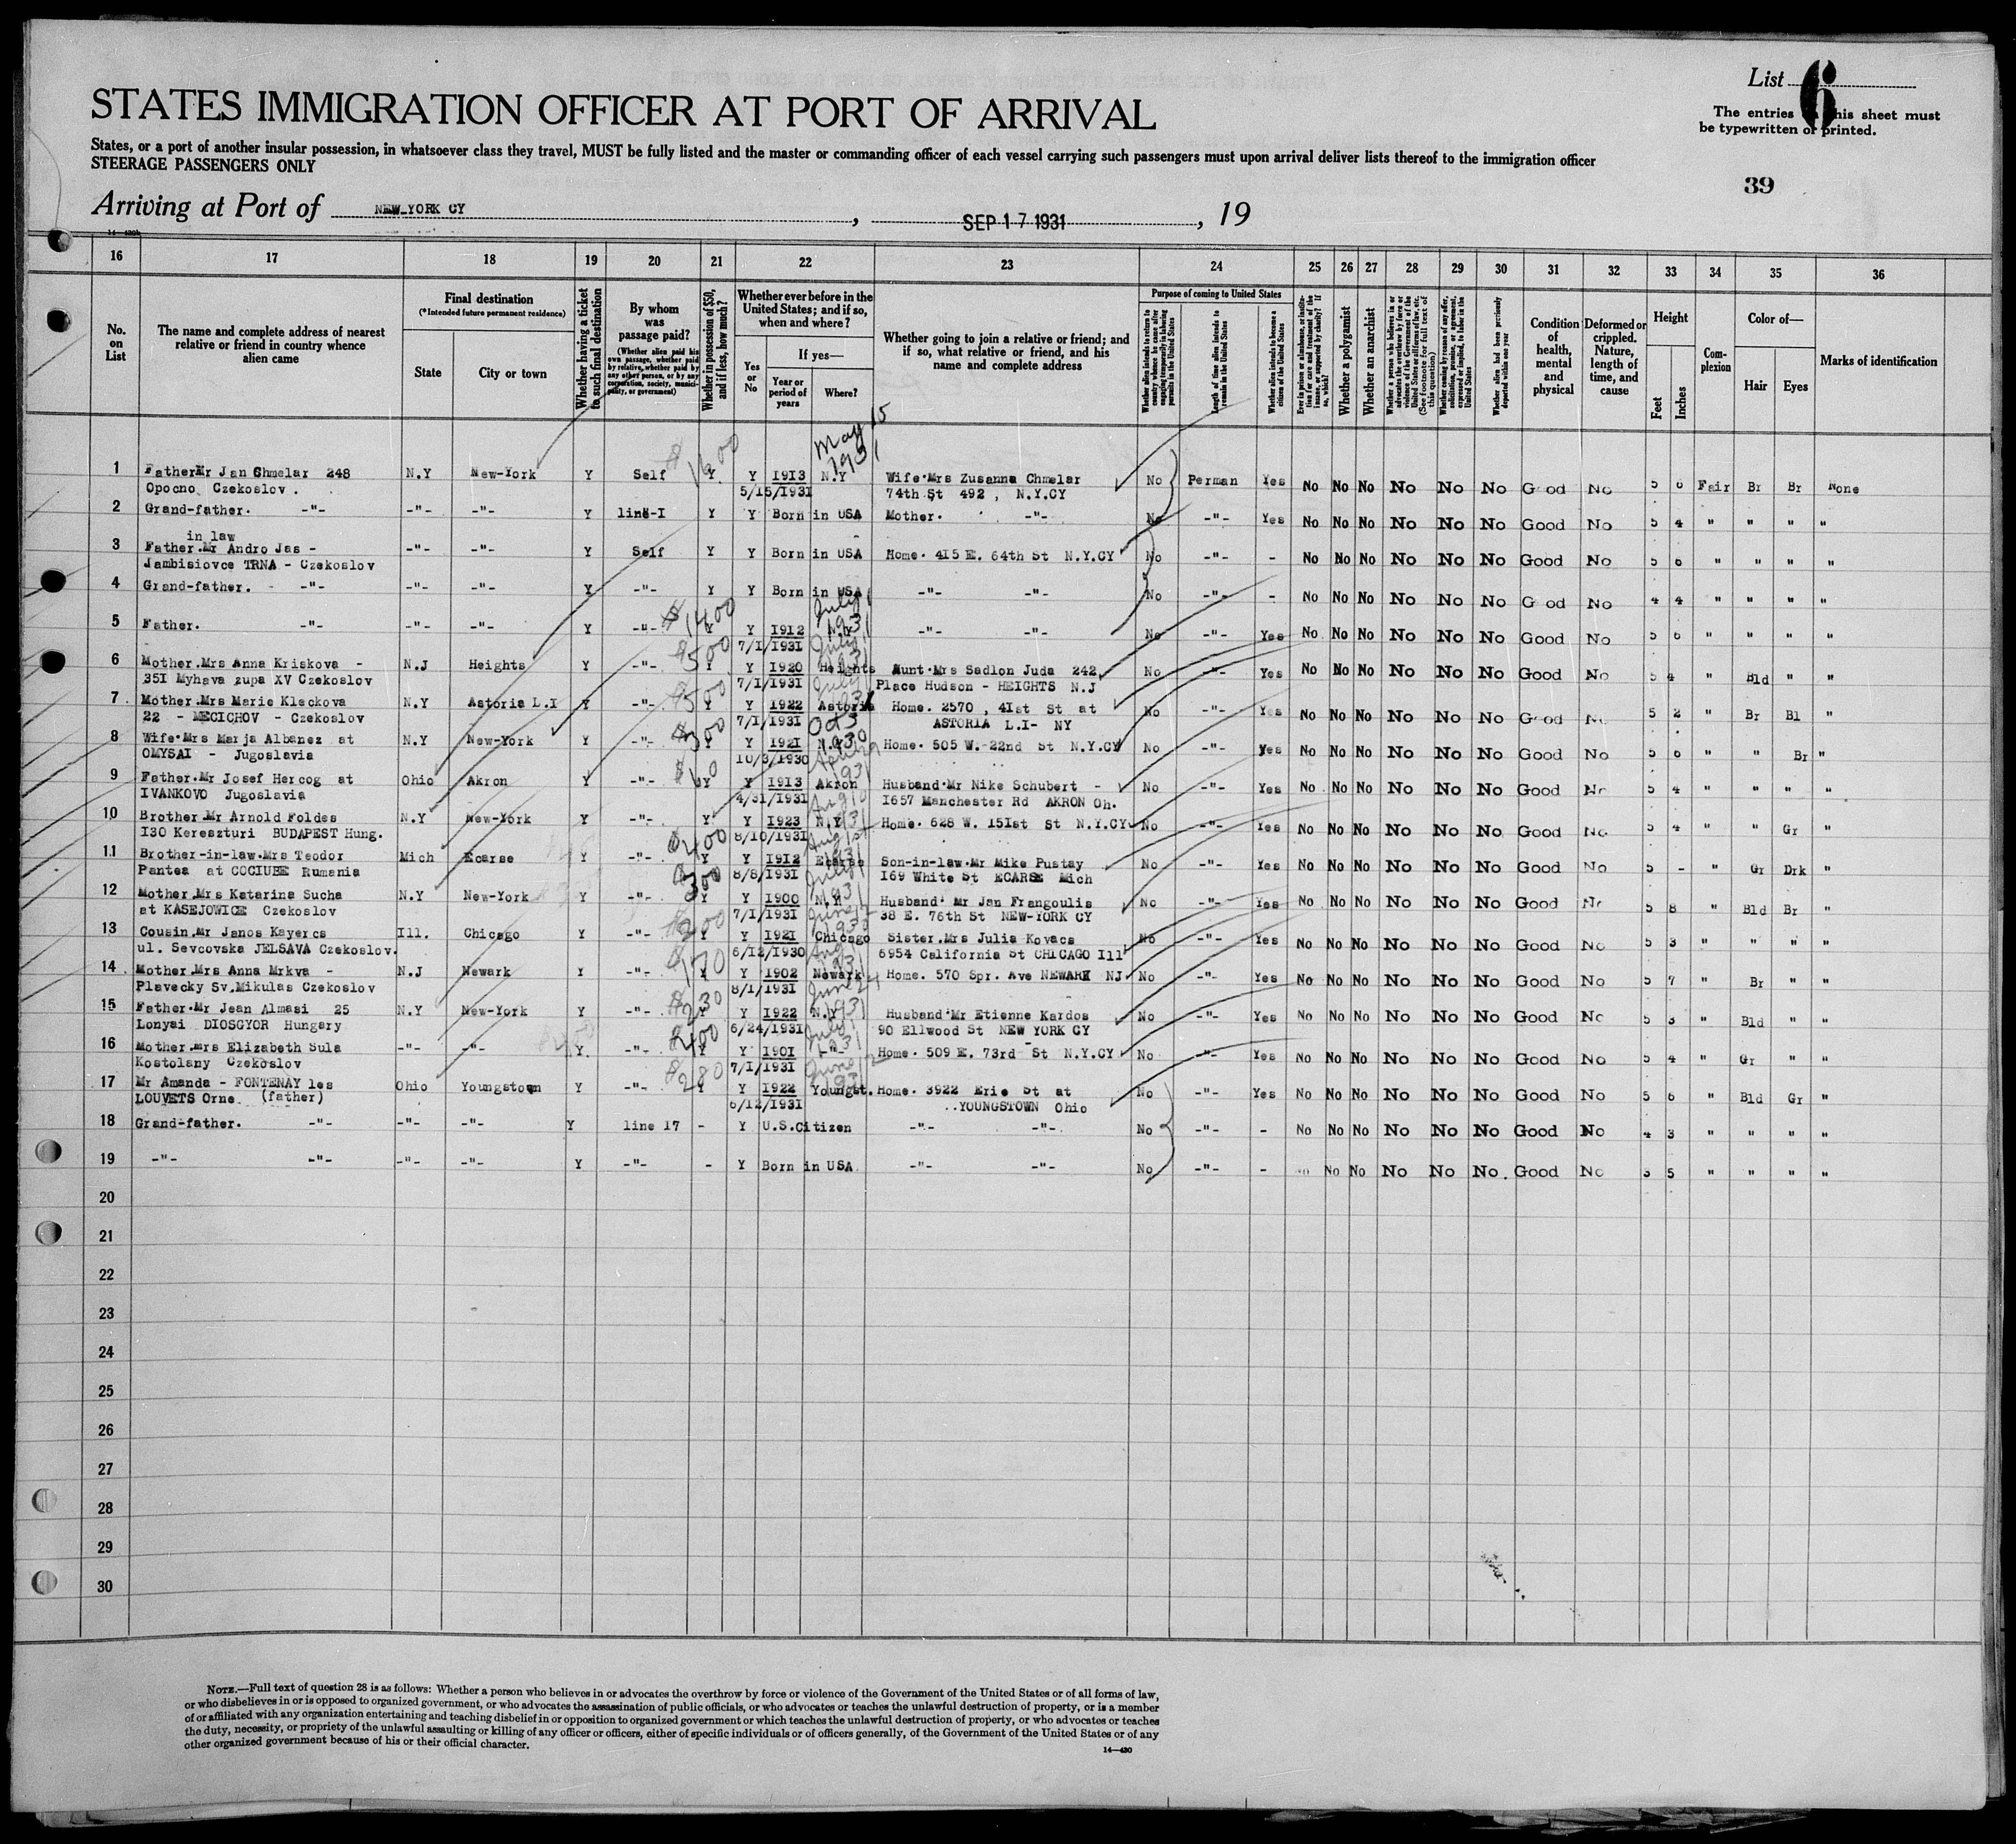 List 6
The entries on this sheet must
be typewritten or printed.
STATES IMMIGRATION OFFICER AT PORT OF ARRIVAL
States, or a port of another insular possession, in whatsoever class they travel, MUST be fully listed and the master or commanding officer of each vessel carrying such passengers must upon arrival deliver lists thereof to the immigration officer
STEERAGE PASSENGERS ONLY
39
Arriving at Port of NEW-YORK CY, SEP 17 1931, 19
16 17 18 19 20 21 22 23 24 25 26 27 28 29 30 31 32 33 34 35 36
No. on List
The name and complete address of nearest relative or friend in country whence alien came
Final destination
(*Intended future permanent residence)
State
City or town
Whether having a ticket to such final destination
By whom was passage paid?
(Whether alien paid his own passage, whether paid by relative, whether paid by any other person, or by any corporation, society, municipality, or government)
Whether in possession of $50, and if less, how much?
Whether ever before in the United States; and if so, when and where?
Yes or No
If yes—
Year or period of years
Where?
Whether going to join a relative or friend; and if so, what relative or friend, and his name and complete address
Purpose of coming to United States
Length of time alien intends to remain in the United States
Whether alien intends to become a citizen of the United States
Whether a polygamist
Whether an anarchist
Condition of health, mental and physical
Deformed or crippled. Nature, length of time, and cause
Height
Feet
Inches
Com-plexion
Color of—
Hair
Eyes
Marks of identification
May 15 1931
1 Father Mr Jan Chmelar 248 N.Y New-York Y Self $1600 Y Y 1913 N.Y Wife Mrs Zusanna Chmelar No Perman Yes No No No No No No Good No 5 6 Fair Br Br None
Opocno Czekoslov. 5/15/1931 74th St 492, N.Y.CY
2 Grand-father. -"- -"- -"- Y line-I Y Y Born in USA Mother. -"- No -"- Yes No No No No No No Good No 5 4 " " " "
in law
3 Father.Mr Andro Jas - -"- -"- Y Self Y Y Born in USA Home. 415 E. 64th St N.Y.CY No -"- - No No No No No No Good No 5 6 " " " "
Jambisiovce TRNA - Czekoslov
4 Grand-father. -"- -"- -"- Y -"- Y Y Born in USA -"- -"- No -"- - No No No No No No Good No 4 4 " " " "
5 Father. -"- -"- -"- Y -"- $1400 Y Y 1912 N.Y July 1 1931 -"- -"- No -"- Yes No No No No No No Good No 5 6 " " " "
7/1/1931
6 Mother.Mrs Anna Kriskova - N.J Heights Y -"- $500 Y Y 1920 Heights Aunt.Mrs Sadlon Juda 242 No -"- Yes No No No No No No Good No 5 4 " Bld " "
351 Myhava zupa XV Czekoslov 7/1/1931 Place Hudson - HEIGHTS N.J
7 Mother.Mrs Marie Kleckova N.Y Astoria L.I Y -"- $500 Y Y 1922 Astoria Home. 2570, 41st St at No -"- Yes No No No No No No Good No 5 2 " Br Bl "
22 - MECICHOV - Czekoslov 7/1/1931 ASTORIA L.I- NY
8 Wife.Mrs Marja Albanez at N.Y New-York Y -"- $300 Y Y 1921 N.Y Oct 3 1930 Home. 505 W.-22nd St N.Y.CY No -"- Yes No No No No No No Good No 5 6 " " Br "
OMYSAI - Jugoslavia 10/3/1930
9 Father.Mr Josef Hercog at Ohio Akron Y -"- $10 Y Y 1913 Akron Husband.Mr Nike Schubert - No -"- Yes No No No No No No Good No 5 4 " " " "
IVANKOVO Jugoslavia 4/31/1931 1657 Manchester Rd AKRON Oh.
10 Brother.Mr Arnold Foldes N.Y New-York Y -"- Y Y 1923 N.Y Home. 628 W. 151st St N.Y.CY No -"- Yes No No No No No No Good No 5 4 " " Gr "
130 Kereszturi BUDAPEST Hung. 8/10/1931
11 Brother-in-law.Mrs Teodor Mich Ecarse Y -"- $400 Y Y 1912 Ecarse Son-in-law.Mr Mike Pustay No -"- Yes No No No No No No Good No 5 - " Gr Drk "
Pantea at COCIUBE Rumania 8/8/1931 169 White St ECARSE Mich
12 Mother.Mrs Katarina Sucha N.Y New-York Y -"- $300 Y Y 1900 N.Y Husband Mr Jan Frangoulis No -"- Yes No No No No No No Good No 5 8 " Bld Br "
at KASEJOWICE Czekoslov 7/1/1931 38 E. 76th St NEW-YORK CY
13 Cousin.Mr Janos Kayercs Ill. Chicago Y -"- $200 Y Y 1921 Chicago Sister.Mrs Julia Kovacs No -"- Yes No No No No No No Good No 5 3 " " " "
ul. Sevcovska JELSAVA Czekoslov. 6/12/1930 6954 California St CHICAGO Ill
14 Mother.Mrs Anna Mrkva - N.J Newark Y -"- $170 Y Y 1902 Newark Home. 570 Spr. Ave NEWARK NJ No -"- Yes No No No No No No Good No 5 7 " Br " "
Plavecky Sv.Mikulas Czekoslov 8/1/1931
15 Father.Mr Jean Almasi 25 N.Y New-York Y -"- $230 Y Y 1922 N.Y June 24 1931 Husband Mr Etienne Kardos No -"- Yes No No No No No No Good No 5 3 " Bld " "
Lonyai DIOSGYOR Hungary 6/24/1931 90 Ellwood St NEW YORK CY
16 Mother.mrs Elizabeth Sula -"- -"- Y -"- $400 Y Y 1901 -"- Home. 509 E. 73rd St N.Y.CY No -"- Yes No No No No No No Good No 5 4 " Gr " "
Kostolany Czekoslov 7/1/1931
17 Mr Amanda - FONTENAY les Ohio Youngstown Y -"- $280 Y Y 1922 Youngst. Home. 3922 Erie St at No -"- Yes No No No No No No Good No 5 6 " Bld Gr "
LOUVETS Orne (father) 6/12/1931 YOUNGSTOWN Ohio
18 Grand-father. -"- -"- -"- Y line 17 - Y U.S.Citizen -"- -"- No -"- - No No No No No No Good No 4 3 " " " "
19 -"- -"- -"- -"- Y -"- - Y Born in USA -"- -"- No -"- - No No No No No No. Good No 3 5 " " " "
20
21
22
23
24
25
26
27
28
29
30
NOTE.—Full text of question 28 is as follows: Whether a person who believes in or advocates the overthrow by force or violence of the Government of the United States or of all forms of law,
or who disbelieves in or is opposed to organized government, or who advocates the assassination of public officials, or who advocates or teaches the unlawful destruction of property, or is a member
of or affiliated with any organization entertaining and teaching disbelief in or opposition to organized government or which teaches the unlawful destruction of property, or who advocates or teaches
the duty, necessity, or propriety of the unlawful assaulting or killing of any officer or officers, either of specific individuals or of officers generally, of the Government of the United States or of any
other organized government because of his or their official character.
14—430